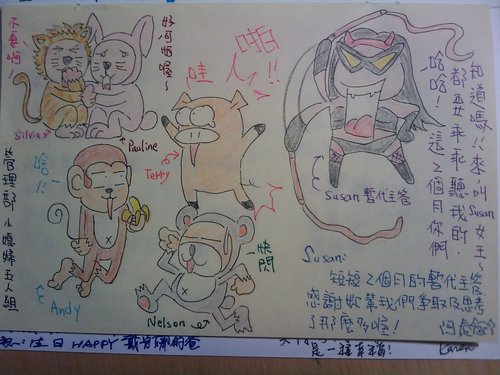 不要啊!
好可怕喔~
啪!!
哇
Silvia
Pauline
Terry
啥!!
管理部小媳婦五人組
Andy
Nelson
快閃
Susan暫代主管
知道嗎!!來,叫Susan女王~
都要乖乖聽我的,
哈哈!這2個月你們
Susan:
短短2個月的暫代主管
感謝妳幫我們爭取及思考
了那麼多喔!
生日HAPPY
是一種幸福!
Karen